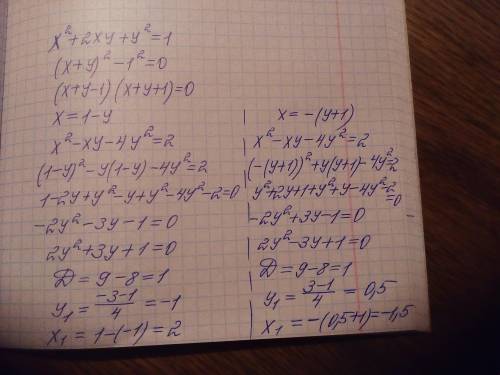 x²+2xy+y²=1
(x+y)²-1²=0
(x+y-1)(x+y+1)=0
x=1-y
x²-xy-4y²=2
(1-y)²-y(1-y)-4y²=2
1-2y+y²-y+y²-4y²-2=0
-2y²-3y-1=0
2y²+3y+1=0
D=9-8=1
y₁=(-3-1)/4=-1
x₁=1-(-1)=2
x=-(y+1)
x²-xy-4y²=2
(-(y+1))²+y(y+1)-4y²=2
y²+2y+1+y²+y-4y²-2=0
-2y²+3y-1=0
2y²-3y+1=0
D=9-8=1
y₁=(3-1)/4=0,5
x₁=-(0,5+1)=-1,5